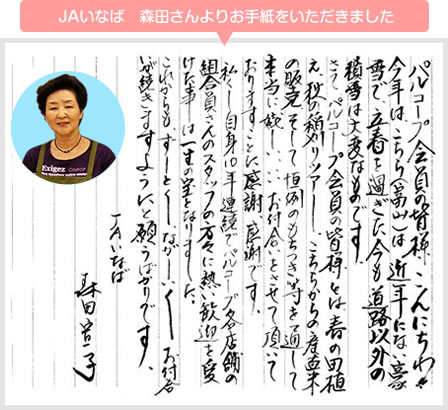 JAいなば　森田さんよりお手紙をいただきました
Exigez
パルコープ会員の皆様、こんにちわ
今年は、こちら(富山)は近年にない豪
雪で、立春を過ぎた今も道路以外の
積雪は大変なものです。
さて、パルコープ会員の皆様とは春の田植
え、秋の稲刈ツアー、こちらからの産直米
の販売、そして恒例のもちつき等を通して
本当に親しいお付合いをさせて頂いて
おりますことに感謝、感謝です。
私し自身10年連続でパルコープ各店舗の
組合員さんのスタッフの方々に熱い歓迎を受
けた事は一生の宝となりました。
これからもずーとくながーいくお付合
いが続きますようにと願うばかりです。
JAいなば
森田